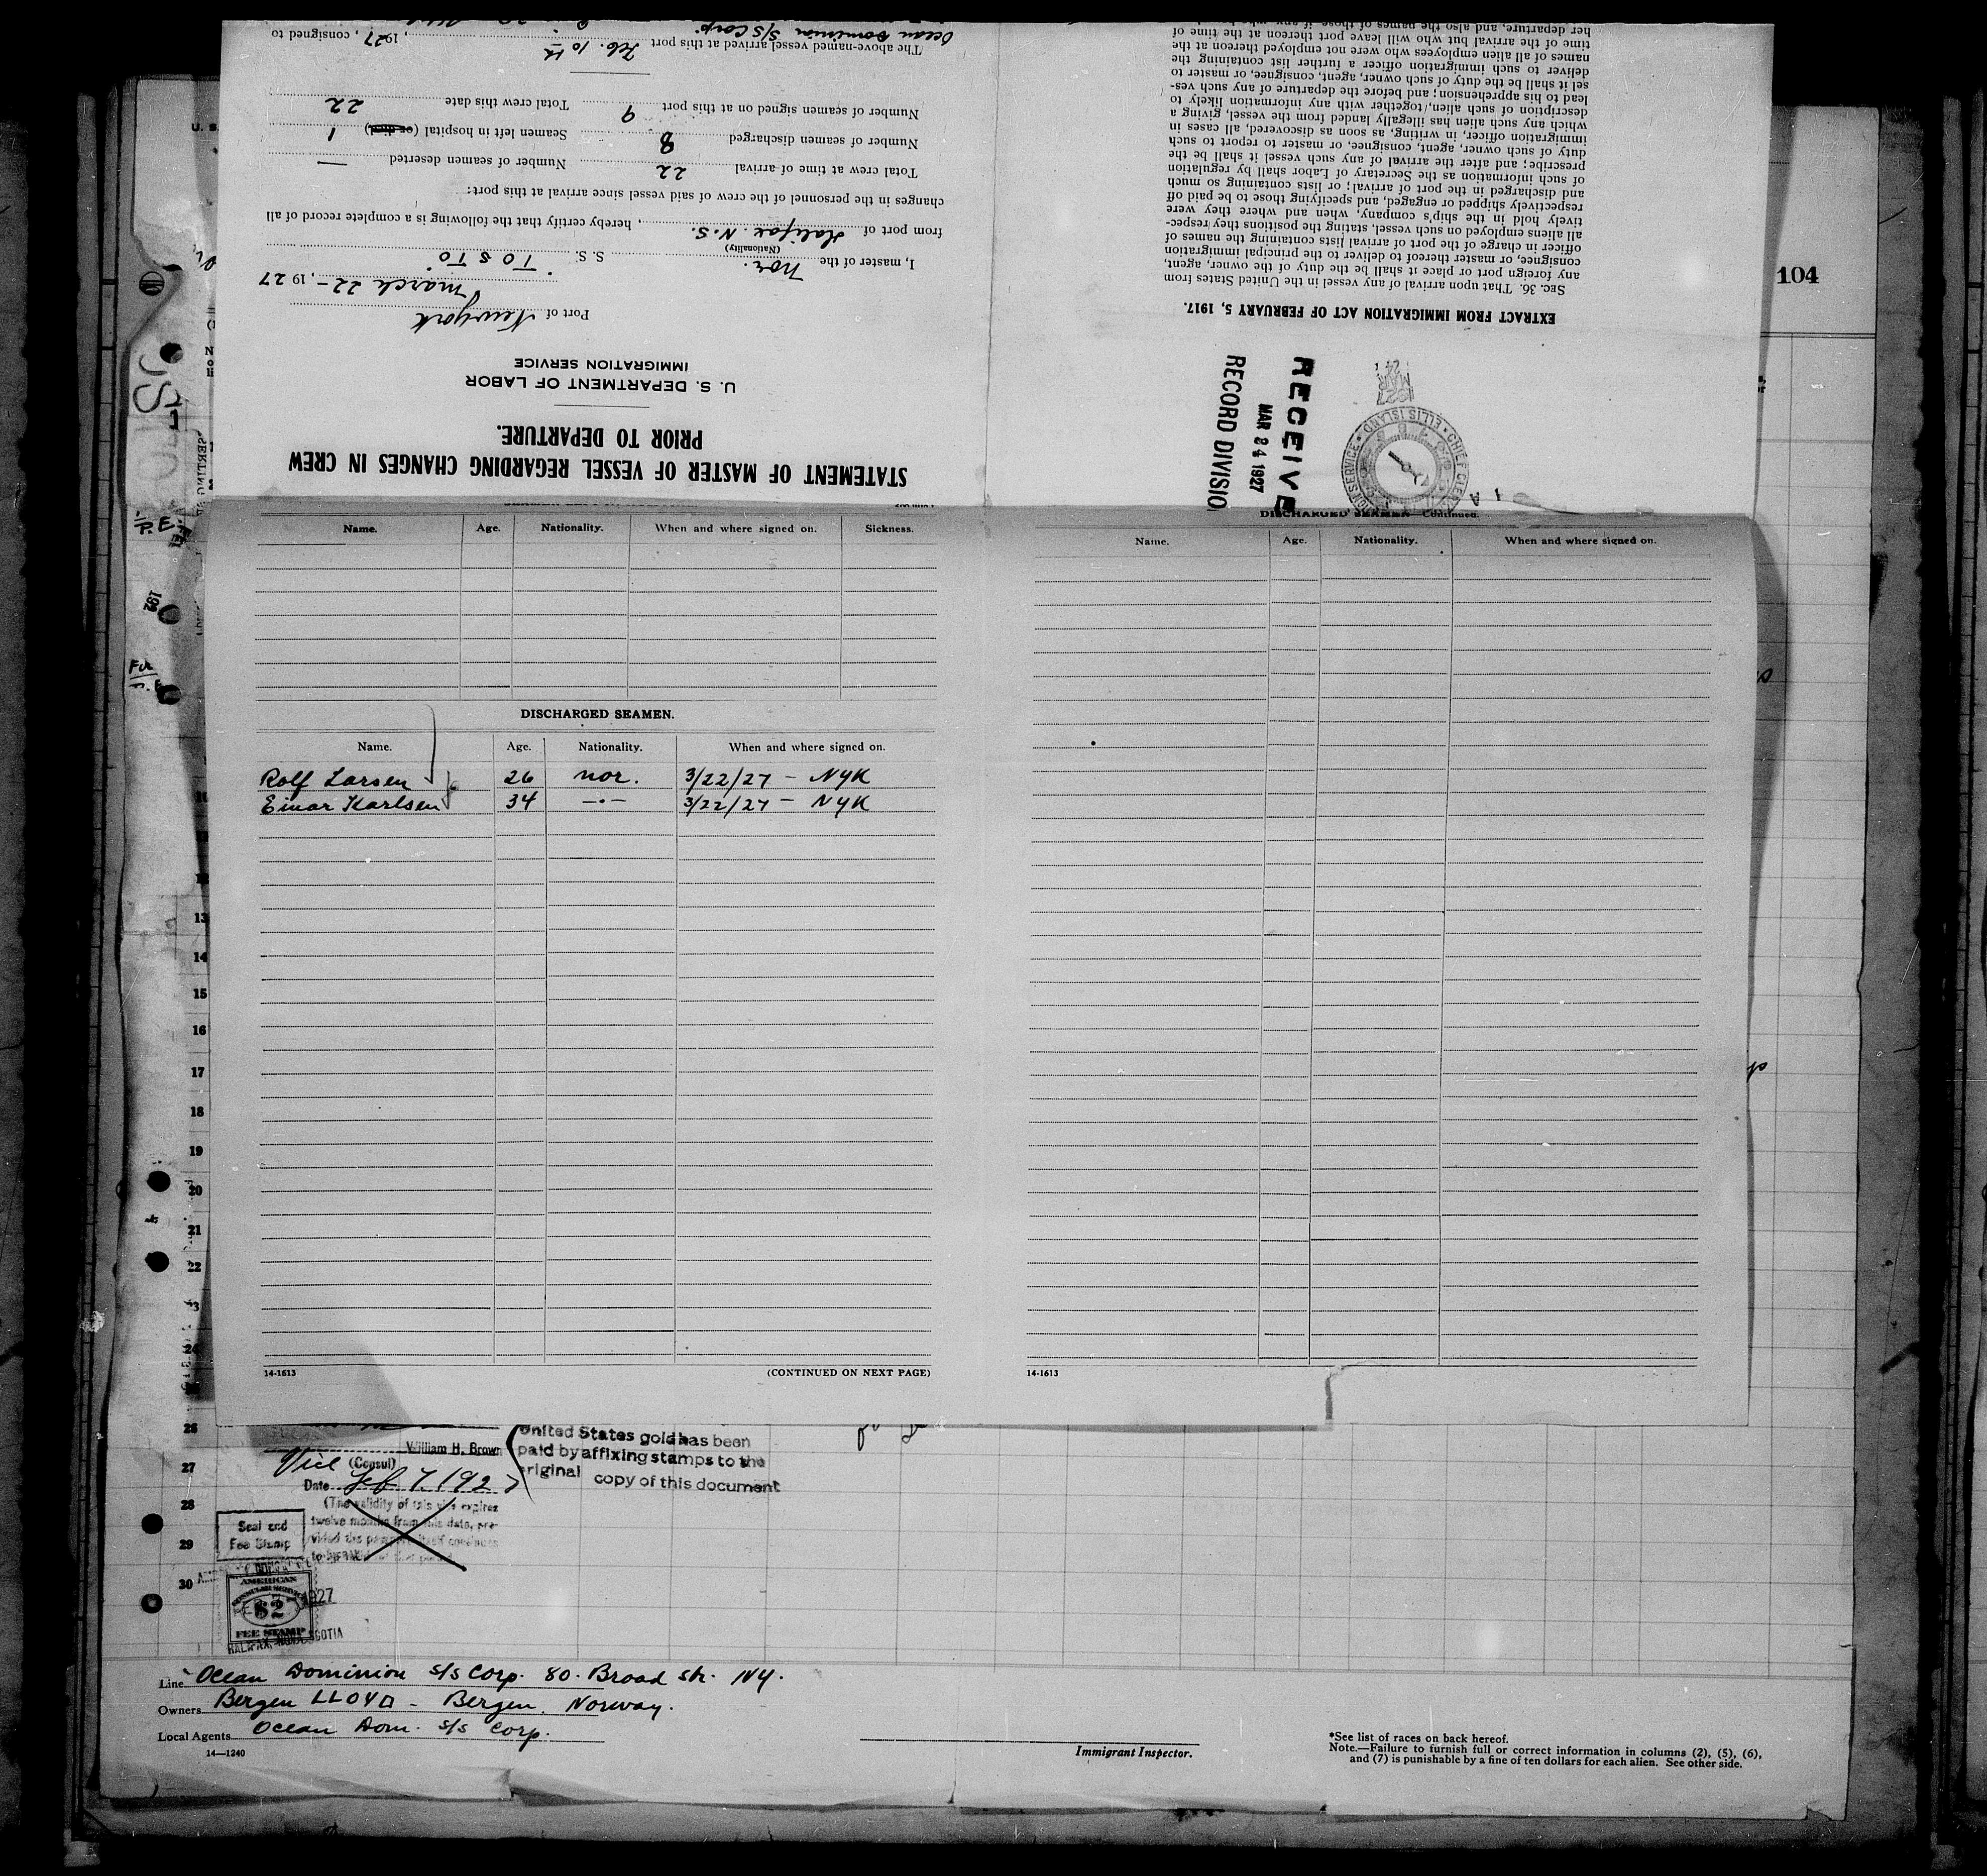 STATEMENT OF MASTER OF VESSEL REGARDING CHANGES IN CREW
PRIOR TO DEPARTURE.
U. S. DEPARTMENT OF LABOR
IMMIGRATION SERVICE
Port of New york
march 22 -, 1927
I, master of the nor. S. S. "TOSTO"
(Nationality)
from port of Halifax N.S., hereby certify that the following is a complete record of all
changes in the personnel of the crew of said vessel since arrival at this port:
Total crew at time of arrival 22 Number of seamen deserted —
Number of seamen discharged 8 Seamen left in hospital (or died) 1
Number of seamen signed on at this port 9 Total crew this date 22
The above-named vessel arrived at this port Feb. 10th, 1927, consigned to
Ocean Dominion S/S Corp.
RECEIVE
MAR 24 1927
RECORD DIVISIO
ELLIS ISLAND
MAR 24
EXTRACT FROM IMMIGRATION ACT OF FEBRUARY 5, 1917.
Sec. 36. That upon arrival of any vessel in the United States from
any foreign port or place it shall be the duty of the owner, agent,
consignee, or master thereof to deliver to the principal immigration
officer in charge of the port of arrival lists containing the names of
all aliens employed on such vessel, stating the positions they respec-
tively hold in the ship's company, when and where they were
respectively shipped or engaged, and specifying those to be paid off
and discharged in the port of arrival; or lists containing so much
of such information as the Secretary of Labor shall by regulation
prescribe; and after the arrival of any such vessel it shall be the
duty of such owner, agent, consignee, or master to report to such
immigration officer, in writing, as soon as discovered, all cases in
which any such alien has illegally landed from the vessel, giving a
description of such alien, together with any information likely to
lead to his apprehension; and before the departure of any such ves-
sel it shall be the duty of such owner, agent, consignee, or master to
deliver to such immigration officer a further list containing the
names of all alien employees who were not employed thereon at the
time of the arrival but who will leave port thereon at the time of
her departure, and also the names of those, if any, who
104
Name. Age. Nationality. When and where signed on. Sickness.
DISCHARGED SEAMEN.
Name. Age. Nationality. When and where signed on.
Rolf Larsen 26 nor. 3/22/27 - NYK
Einar Karlsen 34 -·- 3/22/27 - NYK
14-1613 (CONTINUED ON NEXT PAGE)
DISCHARGED SEAMEN—Continued.
Name. Age. Nationality. When and where signed on.
14-1613
13
14
15
16
17
18
19
20
21
22
26
27
28
29
30
William H. Brown
Vice (Consul)
Date Feb 7. 1927
(The validity of this visa expires
twelve months from this date, pro-
vided the passport itself continues
United States gold has been
paid by affixing stamps to the
original copy of this document
Seal and
Fee Stamp
AMERICAN
CONSULAR SERVICE
$2
FEE STAMP
1927
HALIFAX, NOVA SCOTIA
Line Ocean Dominion S/S Corp. 80. Broad Str. NY.
Owners Bergen LLOYD - Bergen. Norway.
Local Agents Ocean Dom. S/S Corp.
14—1240
Immigrant Inspector.
*See list of races on back hereof.
Note.—Failure to furnish full or correct information in columns (2), (5), (6),
and (7) is punishable by a fine of ten dollars for each alien. See other side.